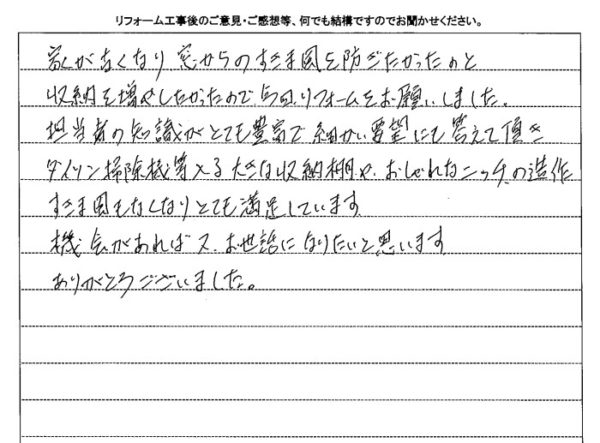 リフォーム工事後のご意見・ご感想等、何でも結構ですのでお聞かせください。
家が古くなり 窓からのすきま風を防ぎたかったのと
収納を増やしたかったので、今回、リフォームをお願いしました。
担当者の知識がとても豊富で 細かい要望にも 答えて頂き
ダイソン掃除機等入る 大きな収納棚や、おしゃれなニッチの造作
すきま風もなくなりとても満足しています
機会があれば又、お世話になりたいと思います
ありがとうございました。